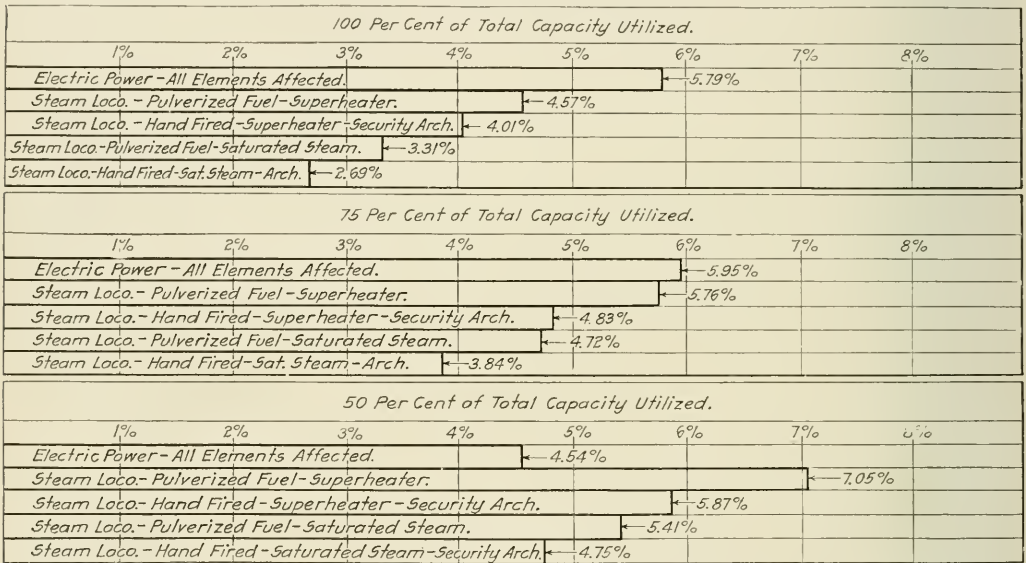 100 Per Cent of Total Capacity Utilized.
1% 2% 3% 4% 5% 6% 7% 8%
Electric Power - All Elements Affected. 5.79%
Steam Loco. - Pulverized Fuel - Superheater. 4.57%
Steam Loco. - Hand Fired - Superheater - Security Arch. 4.01%
Steam Loco. - Pulverized Fuel - Saturated Steam. 3.31%
Steam Loco. - Hand Fired - Sat. Steam - Arch. 2.69%
75 Per Cent of Total Capacity Utilized.
1% 2% 3% 4% 5% 6% 7% 8%
Electric Power - All Elements Affected. 5.95%
Steam Loco. - Pulverized Fuel - Superheater. 5.76%
Steam Loco. - Hand Fired - Superheater - Security Arch. 4.83%
Steam Loco. - Pulverized Fuel - Saturated Steam. 4.72%
Steam Loco. - Hand Fired - Sat. Steam - Arch. 3.84%
50 Per Cent of Total Capacity Utilized.
1% 2% 3% 4% 5% 6% 7% 8%
Electric Power - All Elements Affected. 4.54%
Steam Loco. - Pulverized Fuel - Superheater. 7.05%
Steam Loco. - Hand Fired - Superheater - Security Arch. 5.87%
Steam Loco. - Pulverized Fuel - Saturated Steam. 5.41%
Steam Loco. - Hand Fired - Saturated Steam - Security Arch. 4.75%